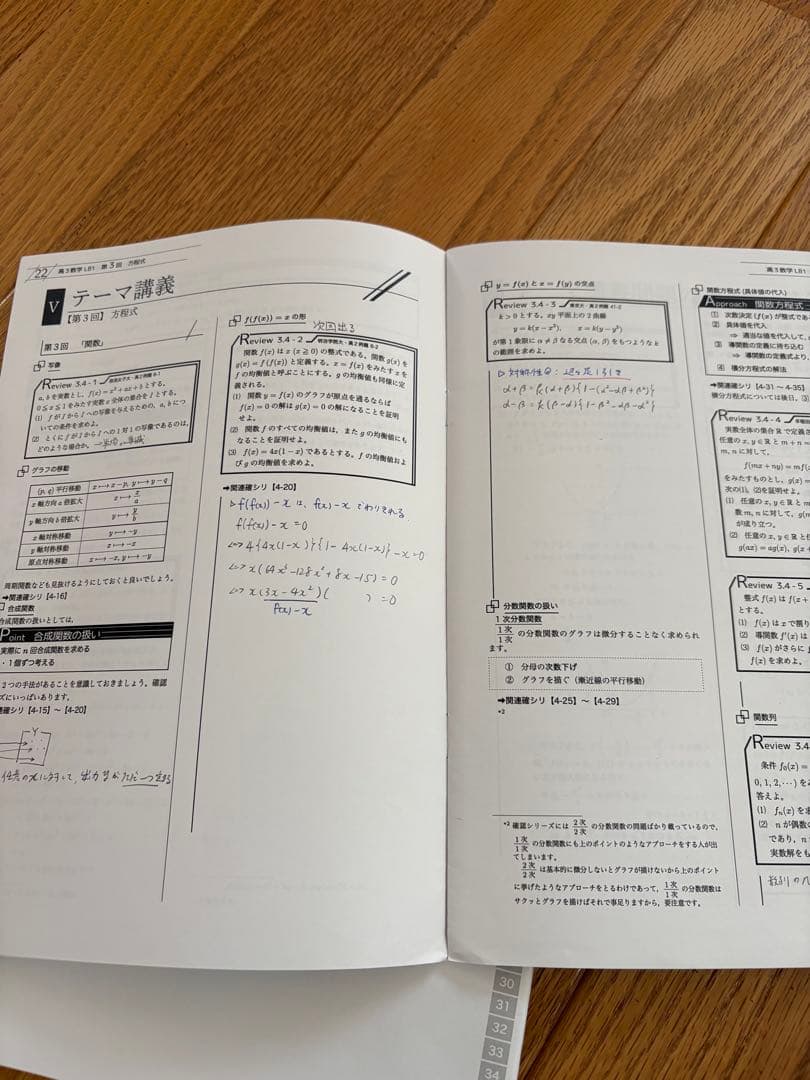 22 高3数学LB1 第3回 方程式
V テーマ講義
【第3回】方程式
第3回 「関数」
写像
Review 3.4 - 1
a, b を実数とし,f(x) = x² + ax + b とする.
0 ≦ x ≦ 1 をみたす実数 x 全体の集合を I とする.
(1) f が I から I への写像を与えるための,a, b につ
いての条件を求めよ.
(2) とくに f が I から I への1対1の写像であるのは,
どのような場合か.
グラフの移動
(p, q) 平行移動 x ⟼ x − p, y ⟼ y − q
x 軸方向 a 倍拡大 x ⟼ x/a
y 軸方向 b 倍拡大 y ⟼ y/b
x 軸対称移動 y ⟼ −y
y 軸対称移動 x ⟼ −x
原点対称移動 x ⟼ −x, y ⟼ −y
周期関数なども見抜けるようにしておくと良いでしょう.
➡関連確シリ【4-16】
合成関数
合成関数の扱いとしては,
Point 合成関数の扱い
実際に n 回合成関数を求める
・1個ずつ考える
2つの手法があることを意識しておきましょう.確認
ズにいっぱいあります.
連確シリ【4-15】〜【4-20】
Y
任意のxに対して,出力yがただ一つ定まる
f(f(x)) = x の形
次回出る
Review 3.4 - 2 明治学院大・高2問題 8-2
関数 f(x) は x (x ≧ 0) の整式である.関数 g(x) を
g(x) = f(f(x)) と定義する.x = f(x) をみたす x を
f の均衡値と呼ぶことにする.g の均衡値も同様に定
義される.
(1) 関数 y = f(x) のグラフが原点を通るならば
f(x) = 0 の解は g(x) = 0 の解になることを証明
せよ.
(2) 関数 f のすべての均衡値は,また g の均衡値にも
なることを証明せよ.
(3) f(x) = 4x(1 − x) であるとする.f の均衡値およ
び g の均衡値を求めよ.
➡関連確シリ【4-20】
▷ f(f(x)) − x は, f(x) − x でわりきれる
f(f(x)) − x = 0
⇔ 4{4x(1−x)}{1 − 4x(1−x)} − x = 0
⇔ x(64x³ − 128x² + 8x − 15) = 0
⇔ x(3x − 4x²)( ) = 0
f(x) − x
y = f(x) と x = f(y) の交点
Review 3.4 - 3 東京大・高2問題 41-2
k > 0 とする.xy 平面上の2曲線
y = k(x − x³), x = k(y − y³)
が第1象限に α ≠ β なる交点 (α, β) をもつような k
の範囲を求めよ.
▷ 対称性◎:辺々足し引き
α + β = k(α + β){1 − (α² − αβ + β²)}
α − β = k(β − α){1 − β² − αβ − α²}
分数関数の扱い
1次分数関数
1次/1次 の分数関数のグラフは微分することなく求められ
ます.
① 分母の次数下げ
② グラフを描く(漸近線の平行移動)
➡関連確シリ【4-25】〜【4-29】
*2
*2 確認シリーズには 2次/2次 の分数関数の問題ばかり載っているので,
1次/1次 の分数関数にも上のポイントのようなアプローチをする人が出
てしまいます.
2次/2次 は基本的に微分しないとグラフが描けないから上のポイント
に挙げたようなアプローチをとるわけであって, 1次/1次 の分数関数は
サクッとグラフを描けばそれで事足りますから,要注意です.
高3数学LB1
関数方程式 (具体値の代入)
Approach 関数方程式
① 次数決定 (f(x) が整式であ
② 具体値を代入
⇒ 適当な値を代入して,
③ 導関数の定義に持ち込む
⇒ 導関数の定義式より,
④ 積分方程式の解法
➡関連確シリ【4-31】〜【4-35】
積分方程式については後日,(3)
Review 3.4 - 4
実数全体の集合 R で定義さ
任意の x, y ∈ R と m + n =
m, n に対して,
f(mx + ny) = mf(
をみたすものとし,g(x) =
次の(1), (2)を証明せよ.
(1) 任意の x, y ∈ R と m
数 m, n に対して,g(m
が成り立つ.
(2) 任意の x, y ∈ R と任
g(ax) = ag(x), g(x +
Review 3.4 - 5
整式 f(x) は f(x +
とする.
(1) f(x) は x で割り
(2) 導関数 f′(x) は
(3) f(x) がさらに f
f(x) を求めよ.
関数列
Review 3.4-
条件 f₀(x) =
0, 1, 2, ···) をみ
答えよ.
(1) fₙ(x) を求
(2) n が偶数の
であり,n
実数解をも
30
31
32
33
34